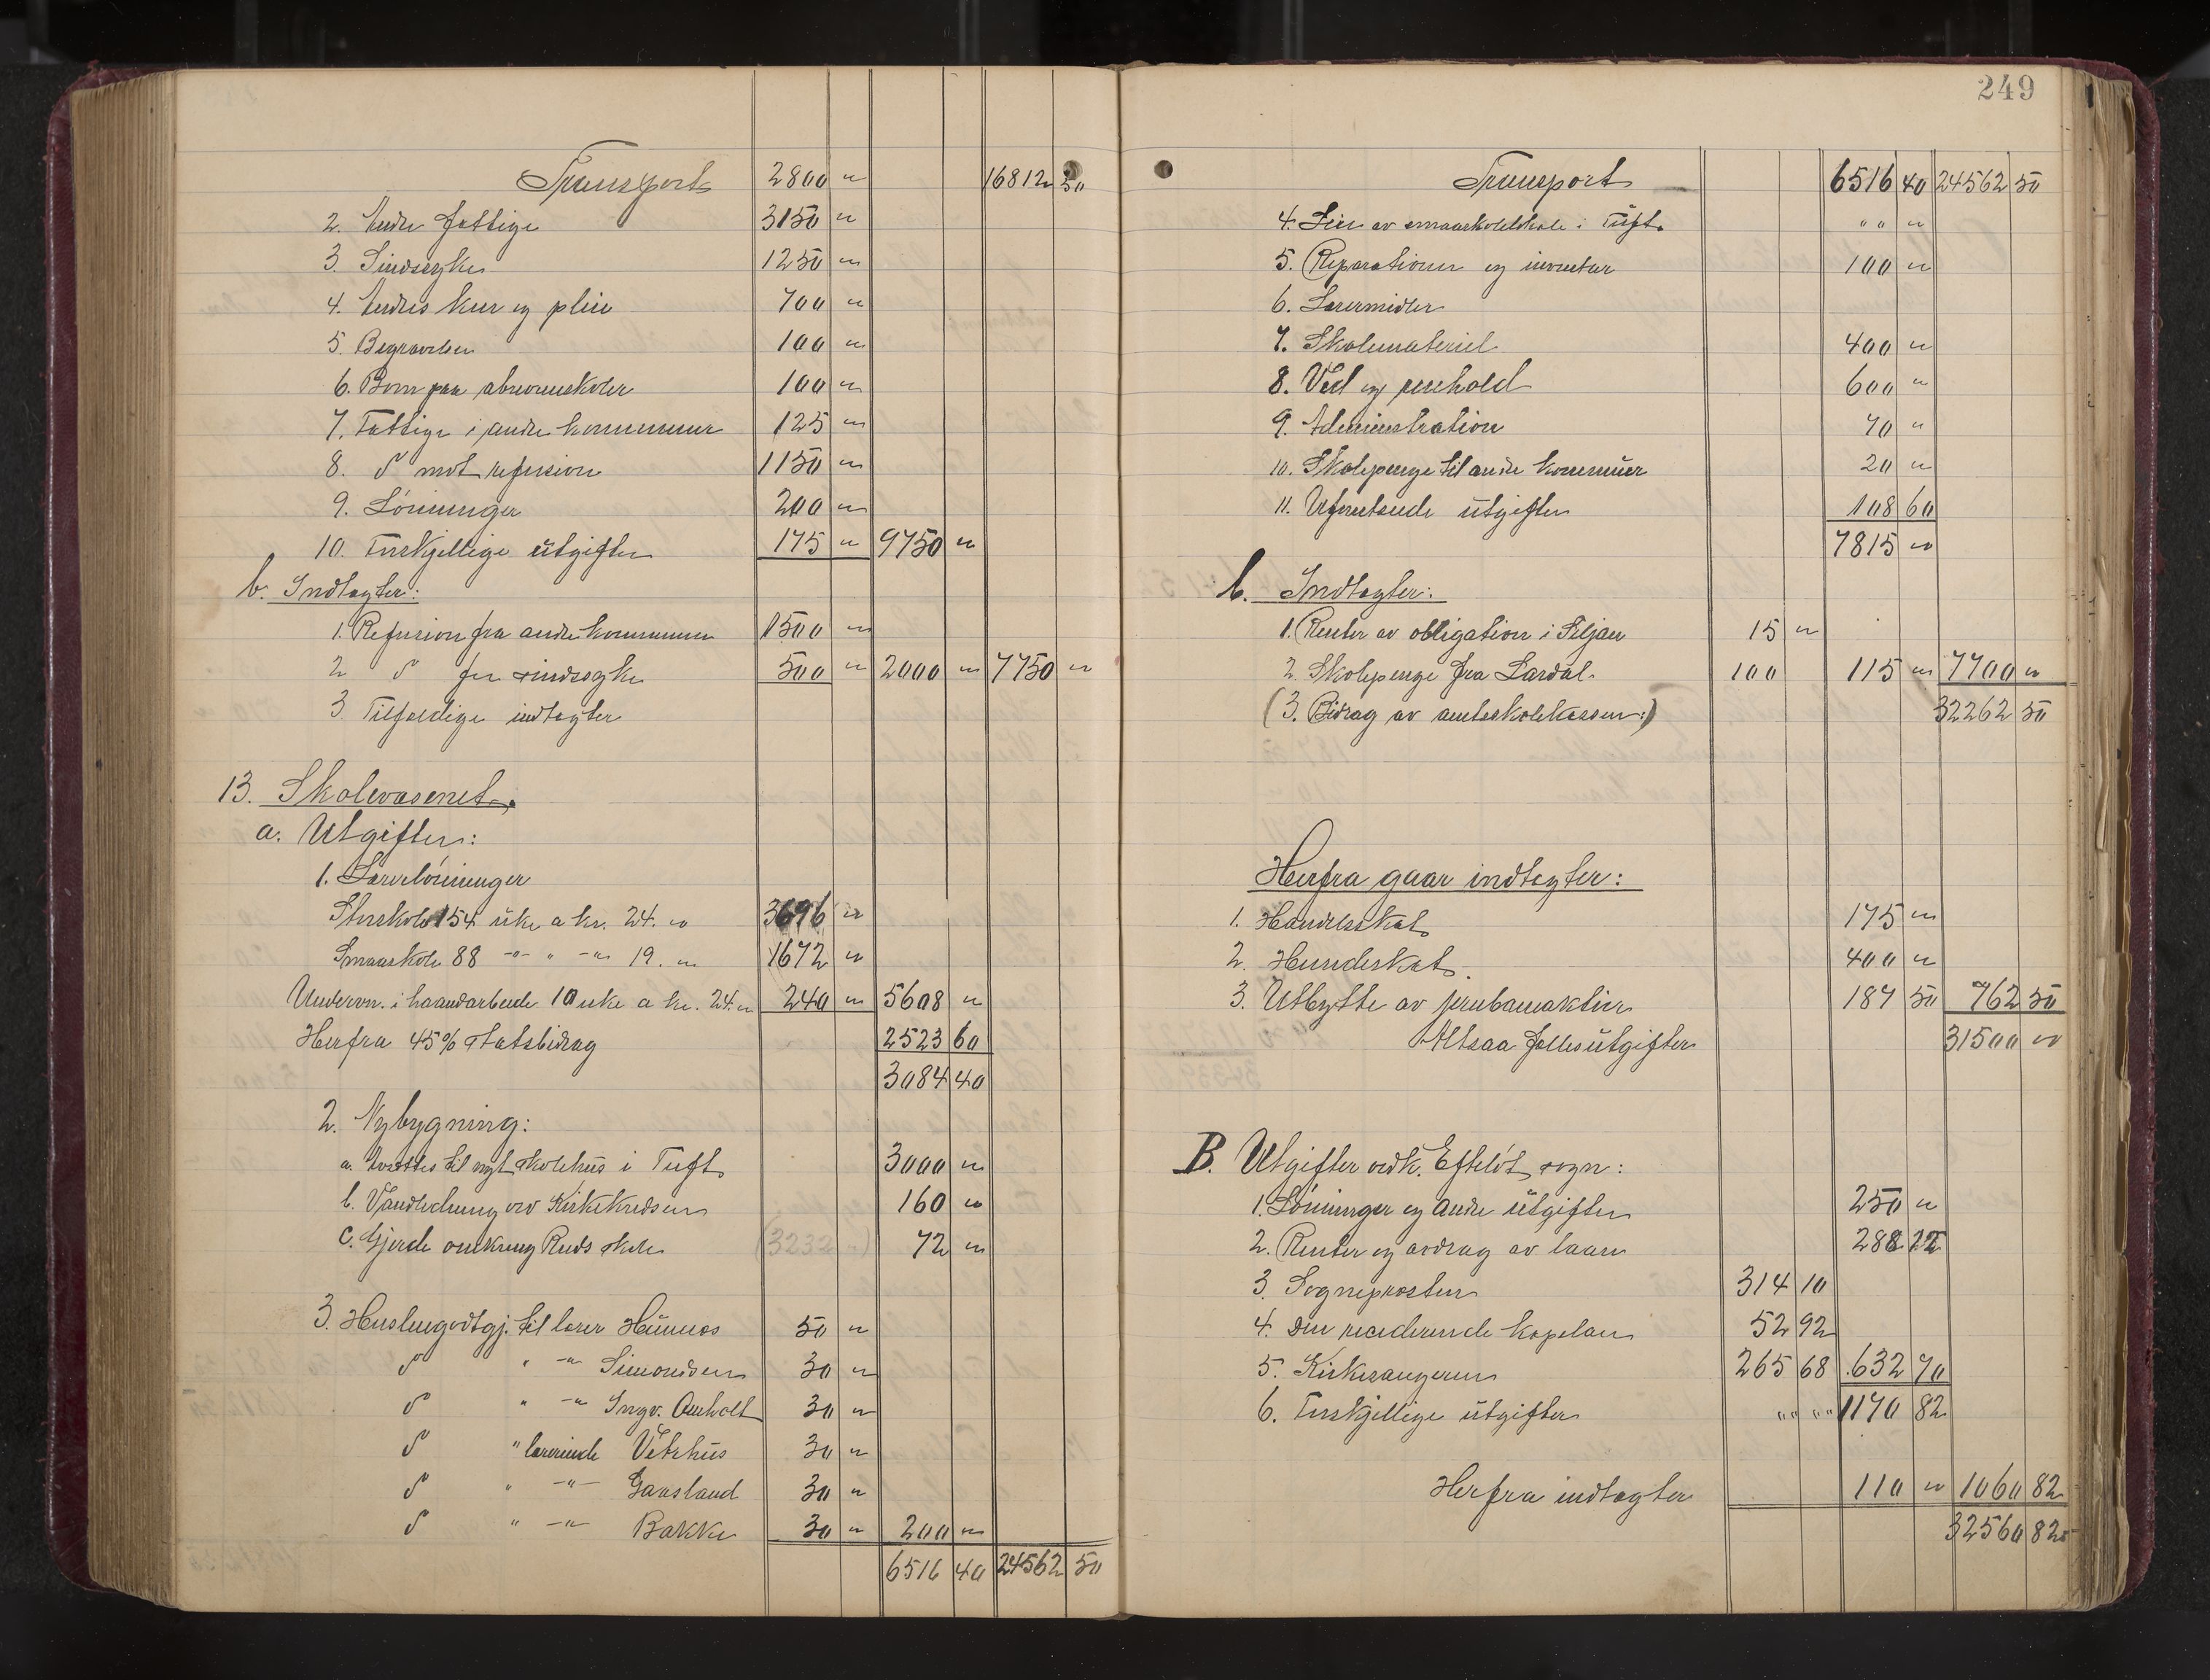 Transport 2800 " 16812 50
2. Andre fattige 3150 "
3. Sindssyke 1250 "
4. Andres kur og pleie 700 "
5. Begravelser 100 "
6. Born paa abnormskoler 100 "
7. Fattige i andre kommuner 125 "
8. d° mot refusion 1150 "
9. Lönninger 200 "
10. Forskjellige utgifter 175 " 9750 "
b. Indtægter:
1. Refusion fra andre kommuner 1500 "
2 d° for sindssyke 500 " 2000 " 7750 "
3 Tilfældige indtægter
13. Skolevæsenet.
a. Utgifter:
1. Lærerlönninger
Storskole 154 uke a kr. 24. " 3696 "
Smaaskole 88 -"- " -"- 19. " 1672 "
Undervn. i haandarbeide 10 uke a kr. 24. " 240 " 5608 "
Herfra 45% statsbidrag 2523 60
3084 40
2. Nybygning:
a. Avsættes til nyt skolehus i Tuft 3000 "
b. Vandledning ved Kirkekredsen 160 "
c. Gjerde omkring Ruds skole (3232 ") 72 "
3. Husleiegodtgj. til lærer Hunnes 50 "
d° " -"- Simonsen 30 "
d° " -"- Ingv. Omholt 30 "
d° " lærerinde Vetrhus 30 "
d° " -"- Gaasland 30 "
d° " -"- Bakke 30 " 200 "
6516 40 24562 50
249
Transport 6516 40 24562 50
4. Leie av smaaskolelokale i Tuft. " " "
5. Reparationer og inventar 100 "
6. Lærermidler
7. Skolemateriel 400 "
8. Ved og renhold 600 "
9. Administration 70 "
10. Skolepenge til andre kommuner 20 "
11. Uforutsede utgifter 108 60
7815 "
b. Indtægter:
1. Renter av obligation i Siljan 15 "
2. Skolepenge fra Lardal. 100 115 " 7700 "
(3. Bidrag av amtsskolekassen:) 32262 50
Herfra gaar indtægter:
1. Handelsskat 175 "
2. Hundeskat. 400 "
3. Utbytte av jernbaneaktier 187 50 762 50
Altsaa fællesutgifter 31500 "
B. Utgifter vedk. Efteløt sogn:
1. Lönninger og andre utgifter 250 "
2. Renter og avdrag av laan 288 12
3. Sogneprosten 314 10
4. Den residerende kapelan 52 92
5. Kirkesangeren 265 68 632 70
6. Forskjellige utgifter " " " " 1170 82
Herfra indtægter 110 " 1060 82
32560 82